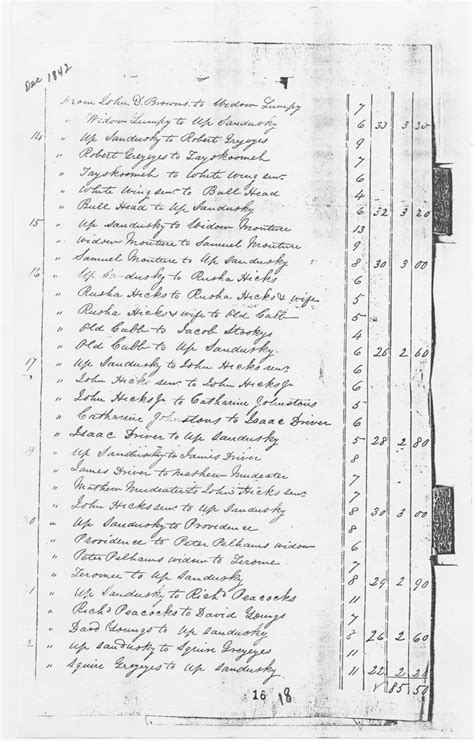 Dec 1842
From John D. Browns to Widow Lumpy 7
" Widow Lumpy to Up Sandusky 6 33 3 30
14 " Up Sandusky to Robert Greyeyes 9
" Robert Greyeyes to Tayskoomeh 7
" Tayskoomeh to White Wing sen. 6
" White Wing sen. to Bull Head 4
" Bull Head to Up Sandusky 6 32 3 20
15 " Up Sandusky to Widow Monture 13
" Widow Monture to Samuel Monture 9
" Samuel Monture to Up Sandusky 8 30 3 00
16 " Up Sandusky to Rusha Hicks 6
" Rusha Hicks to Rusha Hicks & wife 5
" Rusha Hicks & wife to Old Cubb
" Old Cubb to Jacob Stookys
" Old Cubb to Up Sandusky 6 26 2 60
17 " Up Sandusky to John Hicks sen.
" John Hicks sen. to John Hicks Jr
" John Hicks Jr to Catharine Johnstons
" Catharine Johnstons to Isaac Driver
" Isaac Driver to Up Sandusky 5 28 2 80
19 " Up Sandusky to James Driver 8
" James Driver to Mathew Mudeater 7
" Mathew Mudeater to John Hicks sen. 7
" John Hicks sen. to Up Sandusky 8 30 3 00
0 " Up Sandusky to Providence
" Providence to Peter Pelhams widow
" Peter Pelhams widow to Jerome 7
" Jerome to Up Sandusky 8 29 2 90
1 " Up Sandusky to Richd Peacocks 11
" Richd Peacocks to David Youngs 7
" David Youngs to Up Sandusky 8 26 2 60
2 " Up Sandusky to Squire Greyeyes 11
" Squire Greyeyes to Up Sandusky 11 22 2 20
85 50
16 18